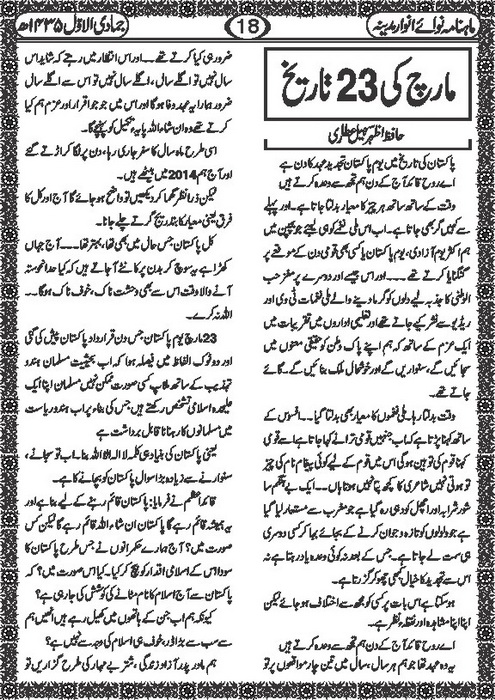 ماہنامہ نوائے انوار مدینہ
18
جمادی الاوّل ۱۴۳۵ھ
مارچ کی 23 تاریخ
حافظ اظہر سہیل عطاری
پاکستان کی تاریخ میں یوم پاکستان تجدید عہد کا دن ہے
اے روح قائد آج کے دن ہم تجھ سے وعدہ کرتے ہیں
وقت کے ساتھ ساتھ ہر چیز کا معیار بدلتا جاتا ہے۔ اور پہلے
سے کہیں گر بھی جاتا ہے۔ اب اس ملی نغمے کو ہی لیجئے جو بچپن میں
ہم اکثر یوم آزادی، یوم پاکستان یا کسی بھی قومی دن کے موقعے پر
گنگنایا کرتے تھے۔۔۔ اور اس جیسے اور دوسرے پر مغز حب
الوطنی کا جذبہ لیے دلوں کو گرما دینے والے ملی نغمات ٹی وی اور
ریڈیو سے نشر کیے جاتے تھے اور تعلیمی اداروں میں تقریبات میں
ایک عزم کے ساتھ کہ ہم اپنے پاک وطن کو حقیقی معنوں میں
سجائیں گے، سنواریں گے اور خوشحال ملک بنائیں گے۔ گائے
جاتے تھے۔
وقت بدلتا رہا۔ ملی نغموں کا معیار بھی بدلتا گیا۔۔ افسوس کے
ساتھ کہنا پڑتا ہے کہ اب جنہیں قومی ترانے کہا جاتا ہے اسے قومی
کہنا قوم کی توہین ہو گی اس میں قوم کے لیے کوئی پیغام نام کی چیز
تو ہوتی نہیں شاعری کا کچھ پتا نہیں ہوتا ہاں۔۔ ایک بے ہنگم سا
شور شرابہ اور اچھل کود ہی رہ گیا ہے جو مغرب سے مستعار لیا گیا
ہے جو دلولوں کو تازہ و جوان کرنے کے بجائے بہا کر کسی دوسری
ہی سمت لے جاتا ہے۔ جس کے بعد نہ کوئی وعدہ یاد رہتا ہے نہ
اس سے تجدید کا خیال کبھی چھو کر گزرتا ہے۔
ہو سکتا ہے اس بات پر کسی کو مجھ سے اختلاف ہو جائے لیکن
اپنا اپنا مشاہدہ اور نقطہ و نظر ہے۔
اے روح قائد آج کے دن ہم تجھ سے وعدہ کرتے ہیں
یہ وہ عہد تھا جو ہم ہر سال، سال میں تین چار موقعوں پر تو
ضرور ہی کیا کرتے تھے۔۔ اور اس انتظار میں رہتے کہ شاید اس
سال نہیں تو اگلے سال، اگلے سال نہیں تو اس سے اگلے سال
ضرور ہمارا یہ عہد وفا ہوگا اور اس میں جو جو اقرار اور عزم ہم کیا
کرتے تھے وہ ان شاء اللہ پایہ تکمیل کو پہنچے گا۔
اسی طرح ماہ و سال کا سفر جاری رہا، دن پر لگا کر اڑتے گئے
اور آج ہم 2014 میں بیٹھے ہیں۔
لیکن ذرا نظر گھما کر دیکھیں تو واضح ہو جائے گا آج اور کل کا
فرق یعنی معیار کا بتدریج گرتے چلے جانا۔
کل پاکستان جس حال میں بھی تھا، بہتر تھا۔۔۔ آج جہاں
کھڑا ہے یہ سوچ کر بدن پر کانٹے آ جاتے ہیں کہ کیا خدانخواستہ
آنے والا وقت اس سے بھی دہشت ناک، خوف ناک ہوگا۔۔۔
اللہ نہ کرے۔
23 مارچ یوم پاکستان جس دن قرارداد پاکستان پیش کی گئی
اور دو ٹوک الفاظ میں فیصلہ ہوا کہ اب بحیثیت مسلمان ہندو
تہذیب کے ساتھ ملاپ کسی صورت ممکن نہیں مسلمان اپنا ایک
علیحدہ اسلامی تشخص رکھتے ہیں جس کی بناء پر اب ہندو ریاست
میں مسلمانوں کا رہنا نا قابل برداشت ہے
یعنی پاکستان کی بنیاد ہی کلمہ لا الہ الا اللہ بنا۔ اب تو سجانے،
سنوارنے سے زیادہ بڑا سوال پاکستان کو بچانے کا ہے۔
قائد اعظم نے فرمایا: پاکستان قائم رہنے کے لیے بنا ہے اور
یہ ہمیشہ قائم رہے گا پاکستان ان شاء اللہ قائم رہے گا لیکن کس
صورت میں؟ آج ہمارے حکمرانوں نے جس طرح پاکستان کا
سودا اس کے اسلامی اقدار کو بیچ کر کیا۔ کیا اس صورت میں؟ کہ
پاکستان سے آج اسلام کا نام مٹانے کی کوشش کی جارہی ہے؟
کیونکہ ہم اب جن کے ہاتھوں میں کھیل رہے ہیں انھیں ہم
سے سب سے بڑا ڈر، خوف ہی اسلام کی وجہ سے نہیں ہے؟
ہم مادر پدر آزاد زندگی، شتر بے مہار کی طرح گزاریں تو